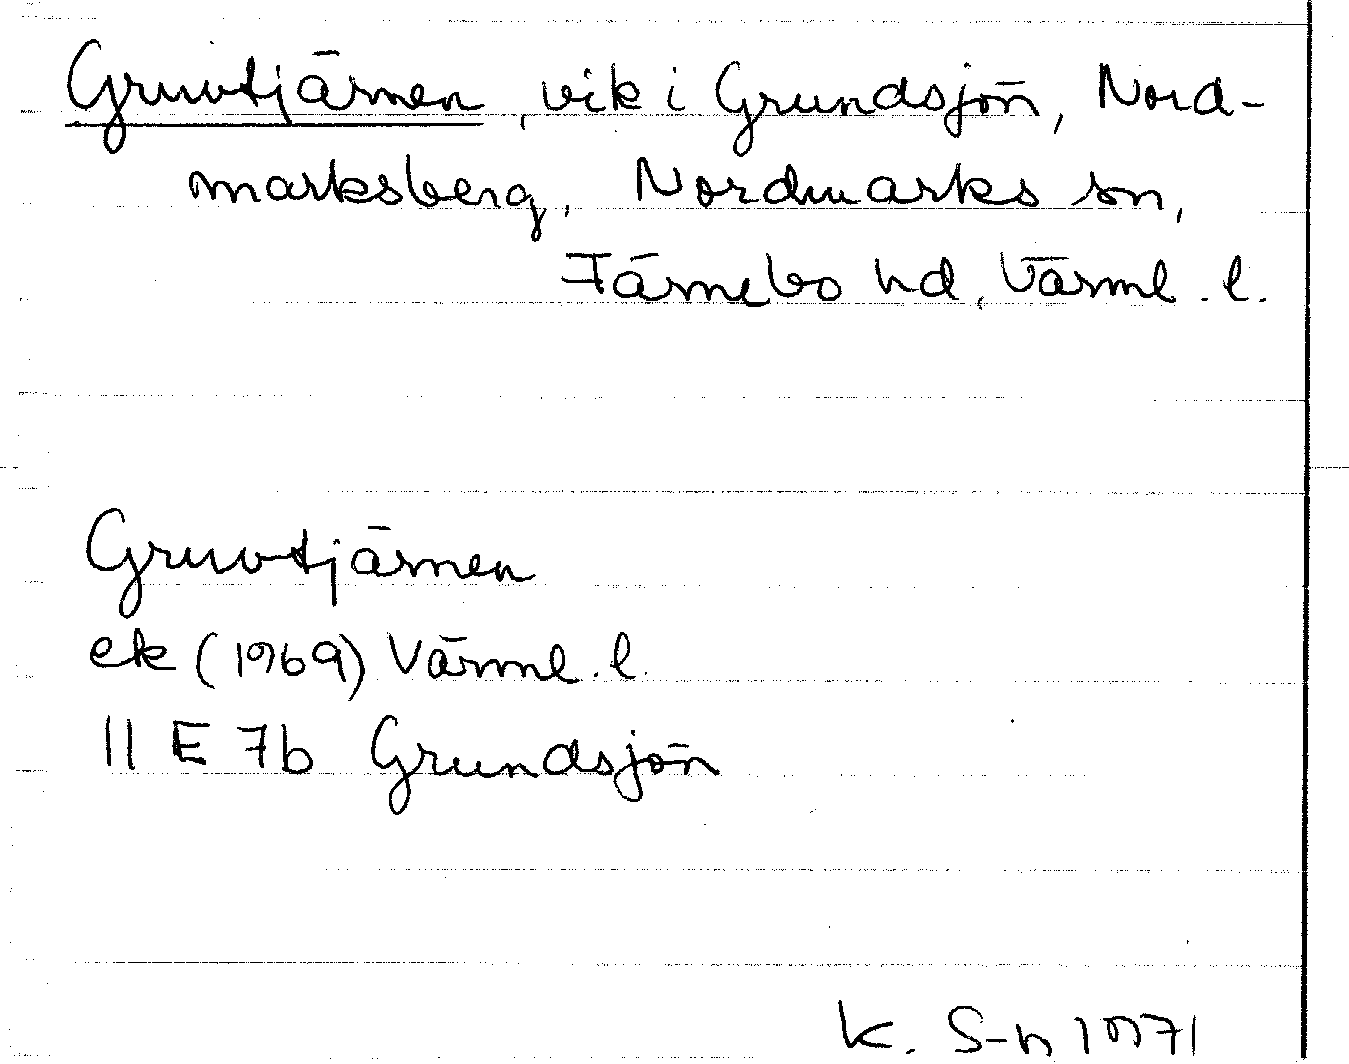 Gruvtjärnen, vik i Grundsjön, Nord-
marksberg, Nordmarks sn,
Färnebo hd, Värml. l.
Gruvtjärnen
ek (1969) Värml. l.
11 E 7b Grundsjön
K. S-n 1971